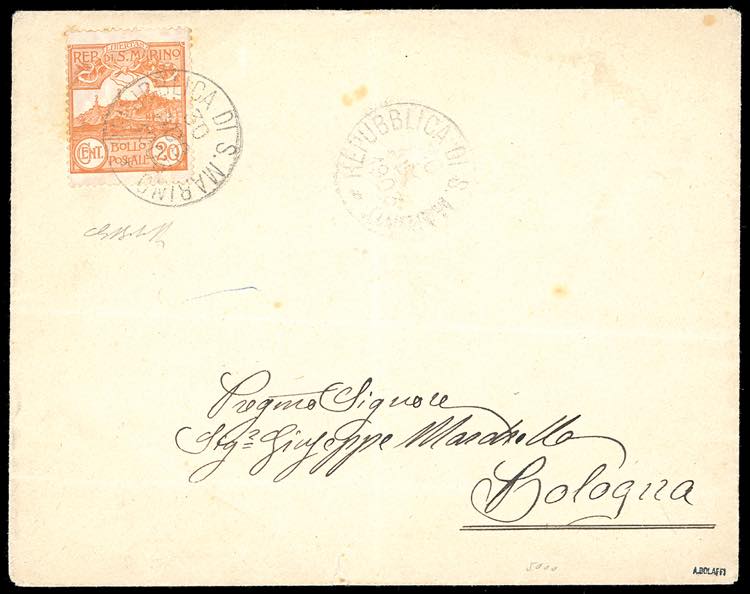 LIBERTAS
REP. DI S. MARINO
CENT.
BOLLO
POSTALE
20
REPUBBLICA DI S. MARINO
30
REPUBBLICA DI S. MARINO
Pregmo Signore
Sigr Giuseppe
Bologna
5000
A.BOLAFFI